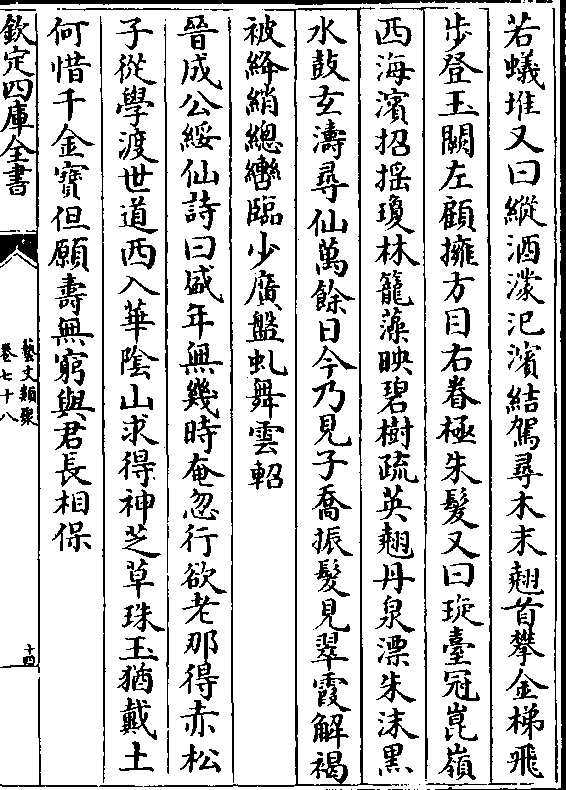 若蟻堆又曰縱酒濛汜濵結駕尋木末翹首攀金梯飛
步登玉闕左顧擁方目右眷極朱髮又曰琁臺冠崑嶺
西海濱招揺瓊林籠藻映碧樹疏英翹丹泉漂朱沫黒
水鼓玄濤尋仙萬餘日今乃見子喬振髮晞翠霞解褐
被絳綃總轡臨少廣盤虬舞雲軺
晉成公綏仙詩曰盛年無幾時奄忽行欲老那得赤松
子從學渡世道西入華陰山求得神芝草珠玉猶戴土
何惜千金寶但願壽無窮與君長相保
欽定四庫全書
藝文類聚
卷七十八
十四